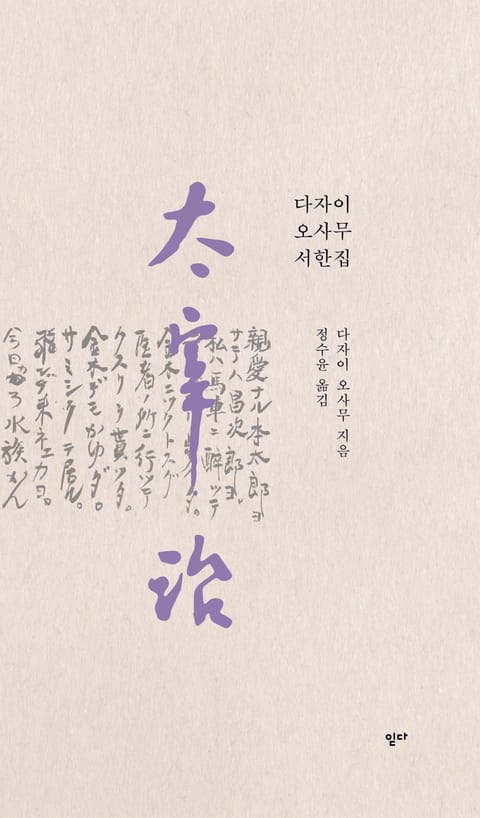 다자이
오사무
서한집
다자이 오사무 지음
정수윤 옮김
太宰治
親愛ナル本太郎ヨ
サテハ昌次郎ヨ。
私ハ馬車ニ酔ッテ
金木ニツクトスグ
医者ノ所ニ行ッテ
クスリヲ貰ッタ。
金木デモかゆダ。
サミシクテ居ル。
遊ビデ来ネエカヨ。
今日から水族かん
읻다